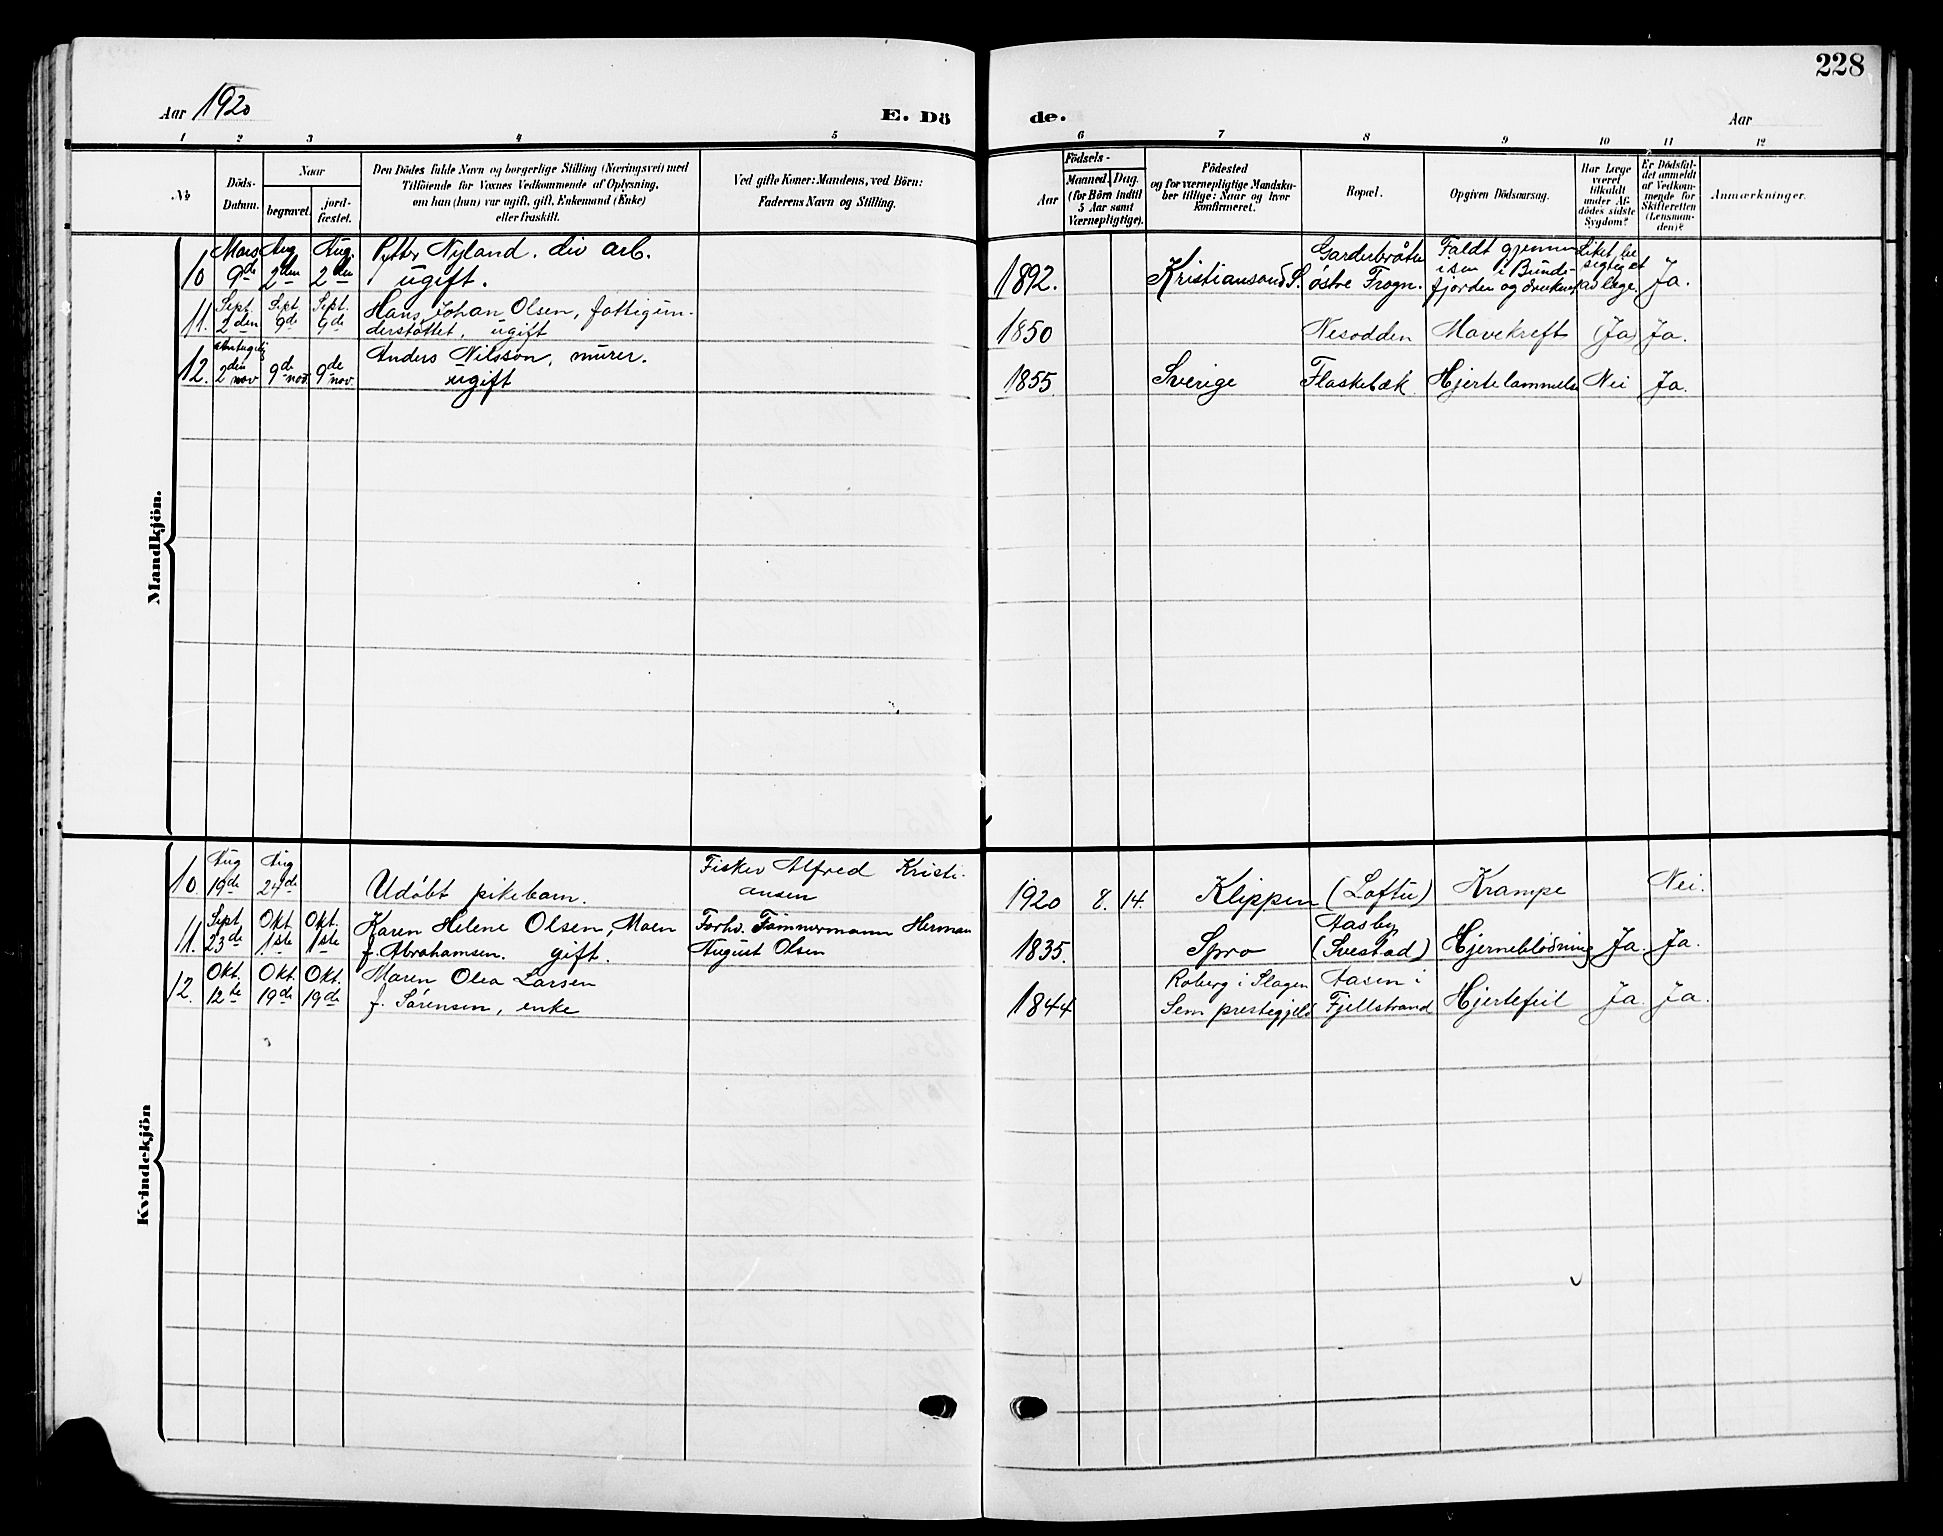 228
Aar 1920
E. Dö
de.
Aar
1 2 3 4 5 6 7 8 9 10 11 12
No
Döds-
Datum.
Naar
begravet.
jord-
fæstet.
Den Dödes fulde Navn og borgerlige Stilling (Næringsvei) med
Tilföiende for Voxnes Vedkommende af Oplysning,
om han (hun) var ugift, gift, Enkemand (Enke)
eller fraskilt.
Ved gifte Koner: Mandens, ved Börn:
Faderens Navn og Stilling.
Födsels-
Aar
Maaned. Dag.
(for Börn indtil
5 Aar samt
Værnepligtige).
Födested
og for værnepligtige Mandska-
ber tillige: Naar og hvor
konfirmeret.
Bopæl.
Opgiven Dödsaarsag.
Har Læge
været
tilkaldt
under Af-
dödes sidste
Sygdom?
Er Dödsfal-
det anmeldt
af Vedkom-
mende for
Skifteretten
(Lensman-
den)?
Anmærkninger.
Mandkjön.
10
Mars
9de
Aug
2den
Aug.
2den
Nyland. div arb.
ugift.
1892.
Kristiansand S.
Garderbråten
østre Frogn.
Faldt gjennem
isen i Bunde-
fjorden og druknet
Liket be
sigtiget
av læge.
Ja.
11.
Sept.
2den
Sept.
9de
Sept.
9de
Hans Johan Olsen, fattigun-
derstøttet, ugift
1850
Nesodden
Mavekreft
(Ja)
Ja.
12.
antagelig
2den
nov
9de
nov.
9de
nov.
Anders Nilsson, murer.
ugift
1855.
Sverige
Flaskebæk.
Hjertelammelse
Nei
Ja.
Kvindekjön
10.
Aug
19de
Aug
24de
Udøbt pikebarn.
Fisker Alfred Kristi-
ansen
1920 8. 14.
Klippen (Loftu)
Krampe
Nei.
11.
Sept
23de
Okt.
1ste
Okt.
1ste
Karen Helene Olsen, Moen
f. Abrahamsen. gift.
Forhv. Tømmermann Herman
August Olsen
1835.
Spro
Aasby
(Svestad)
Hjerneblødning
Ja.
Ja.
12.
Okt.
12te
Okt.
19de
Okt.
19de
Maren Olea Larsen
f. Sørensen, enke
1844
Roberg i Slagen
Sem prestegjeld
Aasen i
Fjellstrand
Hjertefeil
Ja.
Ja.